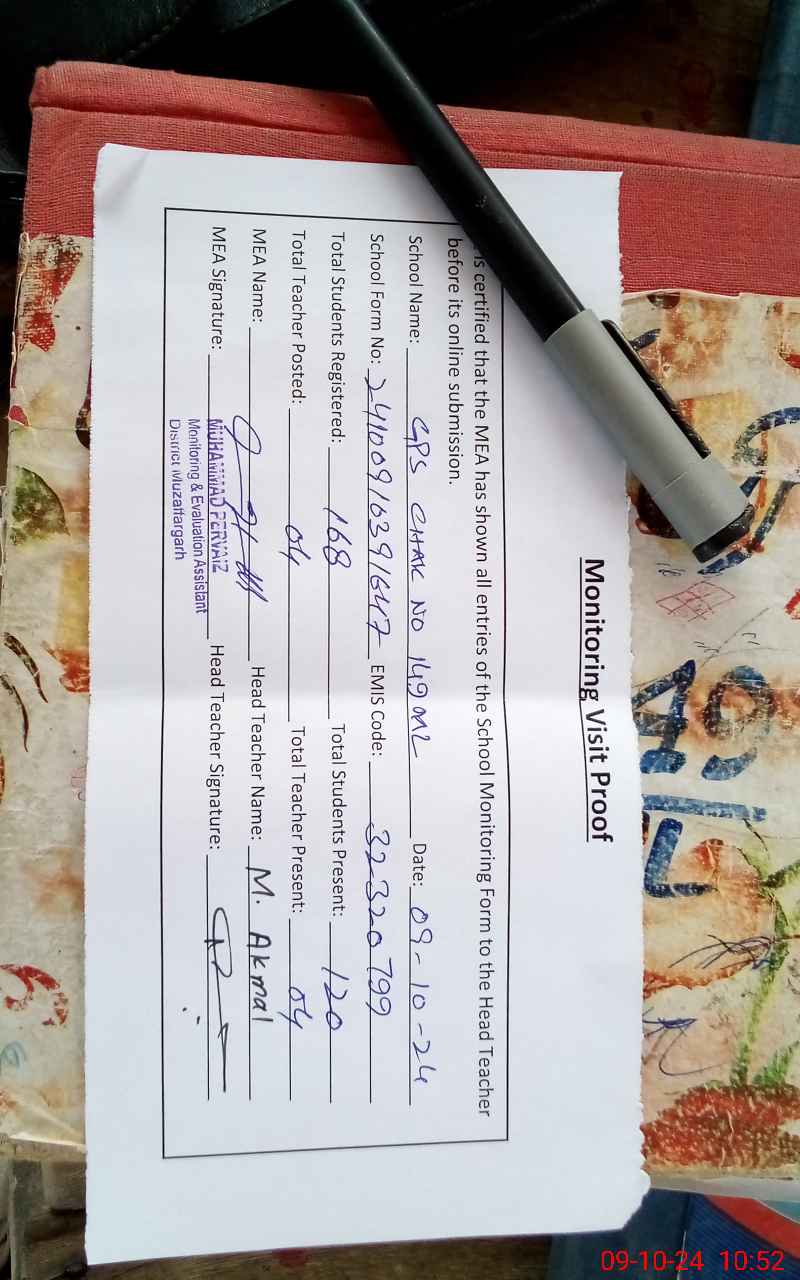 Monitoring Visit Proof
is certified that the MEA has shown all entries of the School Monitoring Form to the Head Teacher
before its online submission.
School Name: GPS CHAK NO 149 ML Date: 09-10-24
School Form No: 24100916391647 EMIS Code: 32320799
Total Students Registered: 168 Total Students Present: 120
Total Teacher Posted: 04 Total Teacher Present: 04
MEA Name: Head Teacher Name: M. Akmal
MEA Signature: Head Teacher Signature:
MUHAMMAD PERVAIZ
Monitoring & Evaluation Assistant
District Muzaffargarh
09-10-24 10:52